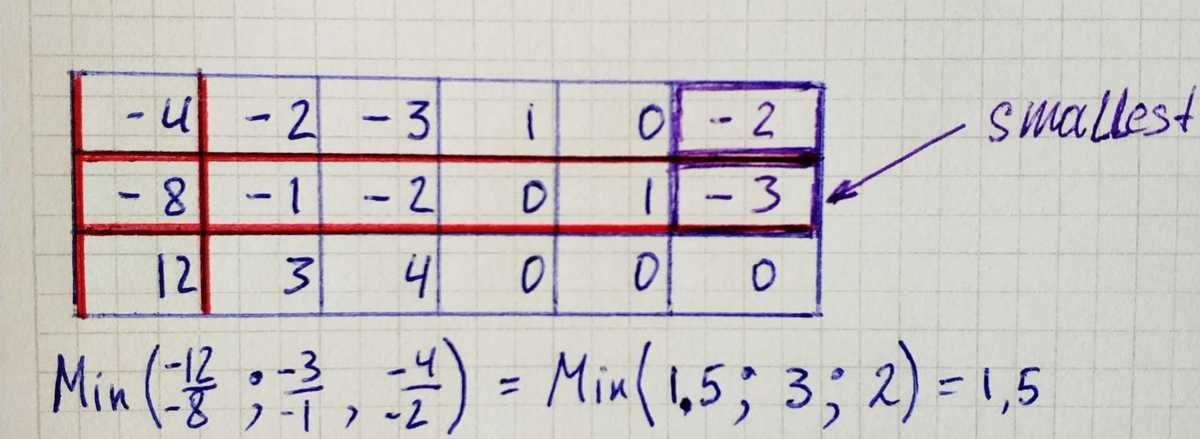 -4 -2 -3 1 0 -2 smallest
-8 -1 -2 0 1 -3
12 3 4 0 0 0
Min(-12/-8 ; -3/-1 , -4/-2) = Min(1.5; 3; 2) = 1,5